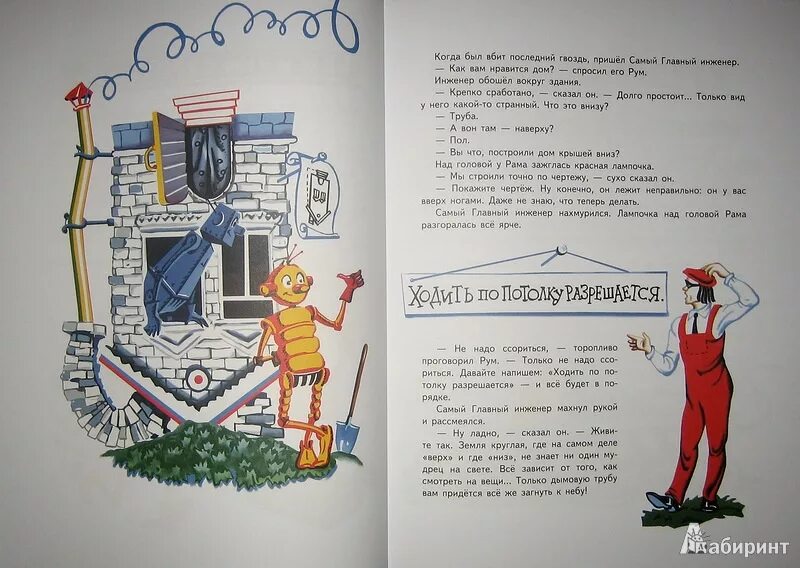 Когда был вбит последний гвоздь, пришёл Самый Главный инженер.
— Как вам нравится дом? — спросил его Рум.
Инженер обошёл вокруг здания.
— Крепко сработано, — сказал он. — Долго простоит... Только вид
у него какой-то странный. Что это внизу?
— Труба.
— А вон там — наверху?
— Пол.
— Вы что, построили дом крышей вниз?
Над головой у Рама зажглась красная лампочка.
— Мы строили точно по чертежу, — сухо сказал он.
— Покажите чертёж. Ну конечно, он лежит неправильно: он у вас
вверх ногами. Даже не знаю, что теперь делать.
Самый Главный инженер нахмурился. Лампочка над головой Рама
разгоралась всё ярче.
ХОДИТЬ ПО ПОТОЛКУ РАЗРЕШАЕТСЯ.
— Не надо ссориться, — торопливо
проговорил Рум. — Только не надо ссо-
риться. Давайте напишем: «Ходить по по-
толку разрешается» — и всё будет в по-
рядке.
Самый Главный инженер махнул рукой
и рассмеялся.
— Ну ладно, — сказал он. — Живи-
те так. Земля круглая, где на самом деле
«верх» и где «низ», не знает ни один му-
дрец на свете. Всё зависит от того, как
смотреть на вещи... Только дымовую трубу
вам придётся всё же загнуть к небу!
Лабиринт